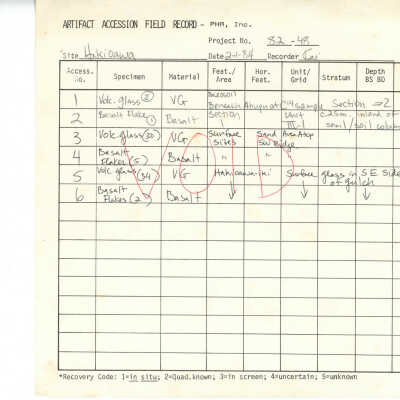 ARTIFACT ACCESSION FIELD RECORD - PHR, Inc.
Project No. 82-48
Site Hakioawa Date 2-1-84 Recorder
Access. No. Specimen Material Feat./Area Hor. Feat. Unit/Grid Stratum Depth BS BD
1 Volc. glass VG Beneath C14 sample Section 2
2 Basalt Flake (1) Basalt Section 1 Unit III-1 inland of soil/soil
3 Volc. glass VG Surface Sites Sand Area Atop SW Ridge
4 Basalt Flakes (5) Basalt " "
5 Volc glass (34) VG Hakioawa-iki Surface glass on S E Side of gulch
6 Basalt Flakes (2) Basalt ↓ ↓ ↓
VOID
*Recovery Code: 1=in situ; 2=Quad.known; 3=in screen; 4=uncertain; 5=unknown